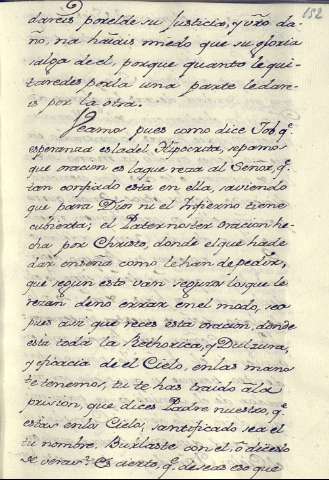 152
dareis por el de su Justicia, y vrõ da-
ño, na haiais miedo que su gloria
salga de el, porque quanto le qui-
taredes por la una parte le dare-
is por la otra.
Veamos pues como dice Job q.^e
esperanza es la del Hipocrita, sepamos
que oracion es la que reza al Señor, q.^e
tan confiado està en ella, saviendo
que para Dios ni el Infierno tiene
cubierta; el Paternoster oracion he-
cha por Christo, donde el que ha de
dar enseña como le han de pedir,
que segun esto van seguros los que le
rezan de no errar en el modo, sea
pues asi que reces esta oracion, donde
està toda la Rethorica, y Dulzura,
y eficacia de el Cielo, en las manos
te tenemos, tu te has traido à la
prision, que dices Padre nuestro, q.^e
estas en los Cielos, santificado sea el
tu nombre. Burlaste con el, ò diceslo
de veras? Es cierto, q.^e deseas eso que